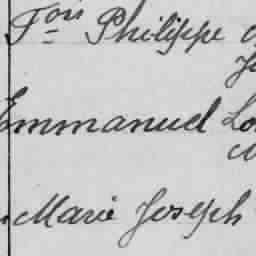 Fois Philippe
Emmanuel
Marie Joseph